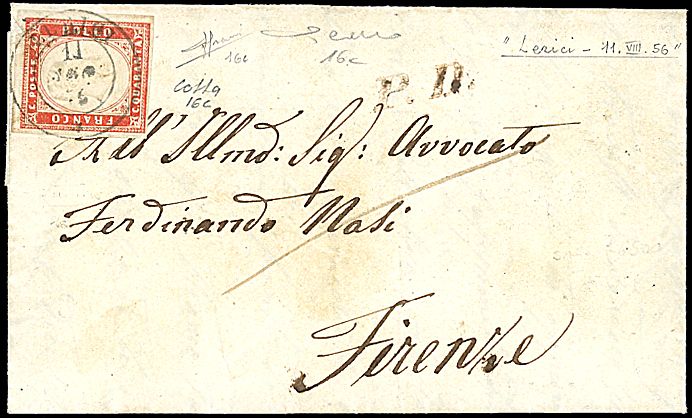 BOLLO
C. POSTE 40
C. QUARANTA
FRANCO
11
AGO
16c
16c
Costa
16c
" Lerici - 11. VIII. 56 "
P. D.
All' Illmo: Sig: Avvocato
Ferdinando Nasi
Firenze